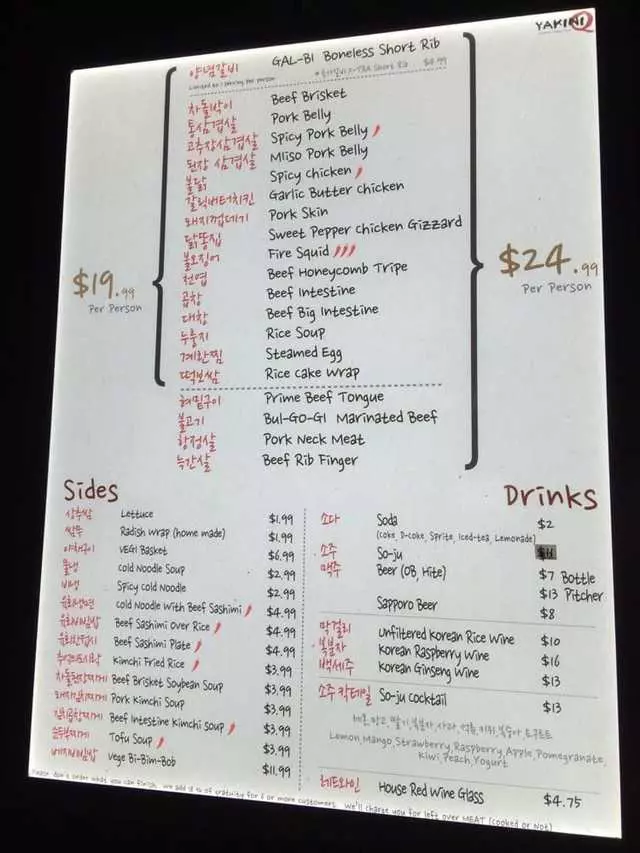 YAKINIQ
양념갈비 GAL-BI Boneless Short Rib
차돌박이 Beef Brisket
통삼겹살 Pork Belly
고추장삼겹살 Spicy Pork Belly
된장 삼겹살 Miso Pork Belly
불닭 Spicy Chicken
갈릭버터치킨 Garlic Butter Chicken
돼지껍데기 Pork Skin
닭똥집 Sweet Pepper Chicken Gizzard
불오징어 Fire Squid
천엽 Beef Honeycomb Tripe
곱창 Beef Intestine
대창 Beef Big Intestine
누룽지 Rice Soup
계란찜 Steamed Egg
떡보쌈 Rice Cake Wrap
$19.99
Per Person
혀밑구이 Prime Beef Tongue
불고기 Bul-GO-GI Marinated Beef
항정살 Pork Neck Meat
늑간살 Beef Rib Finger
$24.99
Per Person
Sides
상추쌈 Lettuce $1.99
쌈무 Radish Wrap (home made) $1.99
야채구이 VEGI Basket $6.99
물냉 Cold Noodle Soup $2.99
비냉 Spicy Cold Noodle $2.99
육회냉면 Cold Noodle With Beef Sashimi $4.99
육회비빔밥 Beef Sashimi Over Rice $4.99
육회한접시 Beef Sashimi Plate $4.99
추억의도시락 Kimchi Fried Rice $3.99
차돌된장찌개 Beef Brisket Soybean Soup $3.99
돼지김치찌개 Pork Kimchi Soup $3.99
김치곱창찌개 Beef Intestine Kimchi Soup $3.99
순두부찌개 Tofu Soup $3.99
베지비빔밥 Vege Bi-Bim-Bob $11.99
Drinks
소다 Soda $2
(Coke, D-Coke, Sprite, Iced-tea, Lemonade)
소주 So-ju
맥주 Beer (OB, Hite) $7 Bottle
$13 Pitcher
Sapporo Beer $8
막걸리 Unfiltered Korean Rice Wine $10
복분자 Korean Raspberry Wine $16
백세주 Korean Ginseng Wine $13
소주 칵테일 So-ju Cocktail $13
레몬,망고,딸기,복분자,사과,석류,키위,복숭아,요구르트
Lemon, Mango, Strawberry, Raspberry, Apple, Pomegranate,
Kiwi, Peach, Yogurt
레드와인 House Red Wine Glass $4.75
Please don't order what you can finish, we add 18% of gratuity for 6 or more customers. We'll charge you for left over MEAT (cooked or Not)